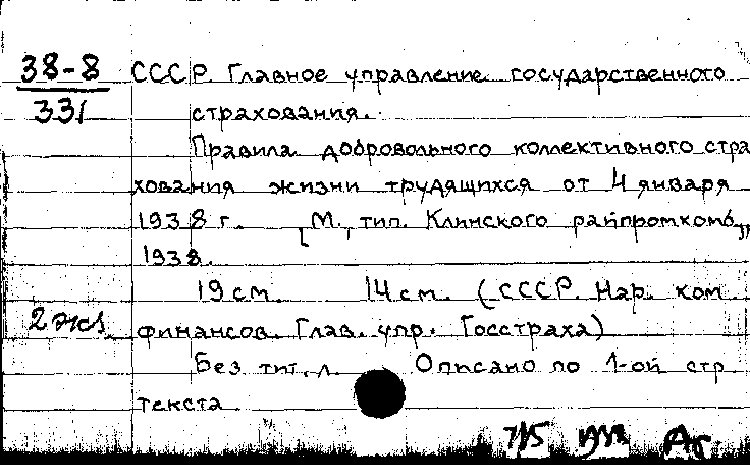 38-8 СССР. Главное управление государственного
331 страхования.
Правила добровольного коллективного стра
хования жизни трудящихся от 4 января
1938 г. [М., тип. Клинского райпромкомб.],
1938.
19 см. 14 см. (СССР. Нар. ком.
2 экз. финансов. Глав. упр. Госстраха)
Без тит. л. Описано по 1-ой стр
текста.
7/5